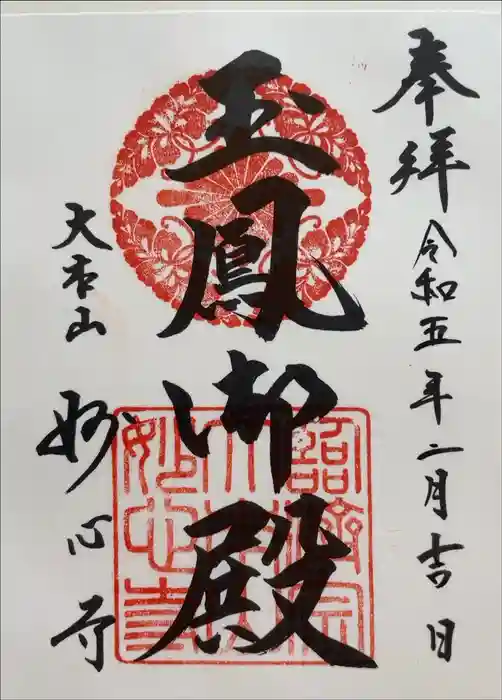 奉拝 令和五年二月吉日
玉鳳御殿
大本山 妙心寺